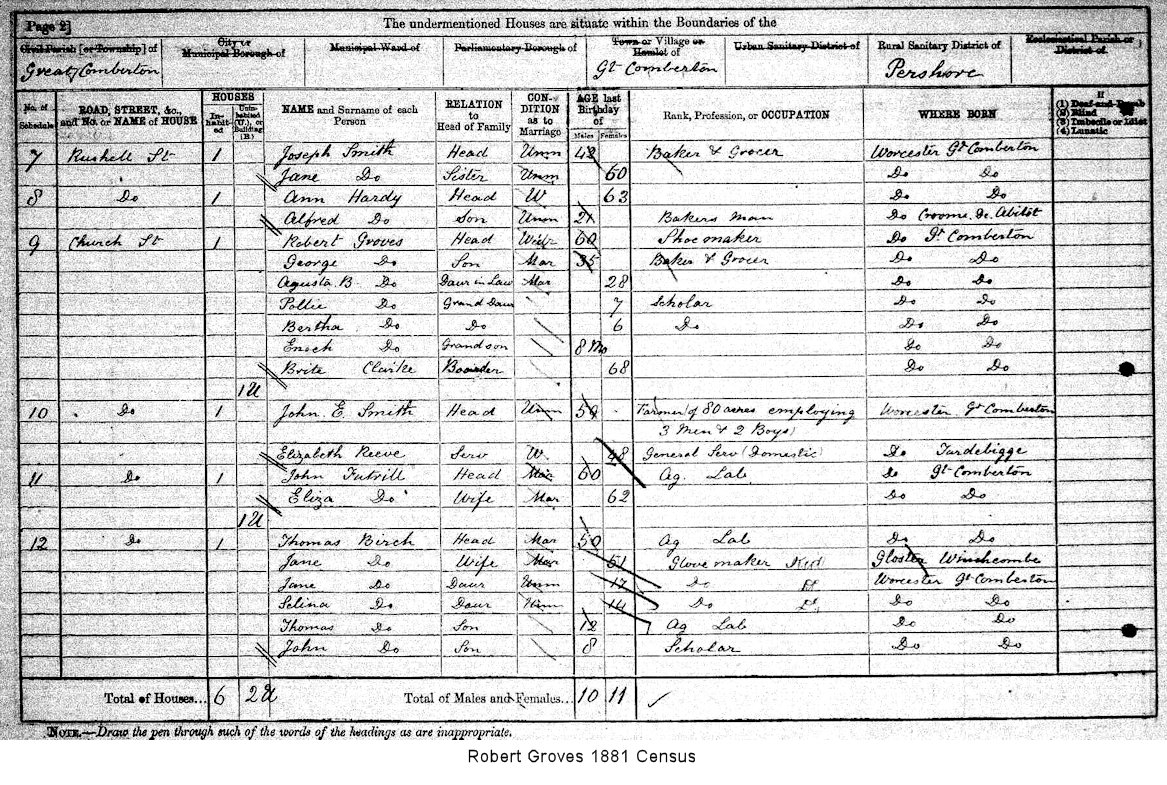 Page 2]
The undermentioned Houses are situate within the Boundaries of the
Civil Parish [or Township] of
City or Municipal Borough of
Municipal Ward of
Parliamentary Borough of
Town or Village or Hamlet of
Urban Sanitary District of
Rural Sanitary District of
Ecclesiastical Parish or District of
Great Comberton Gt Comberton Pershore
No. of Schedule
ROAD, STREET, &c., and No. or NAME of HOUSE
HOUSES
In-habit-ed
Unin-habited (U.), or Building (B.)
NAME and Surname of each Person
RELATION to Head of Family
CON-DITION as to Marriage
AGE last Birthday of
Males Females
Rank, Profession, or OCCUPATION
WHERE BORN
If
(1) Deaf-and-Dumb
(2) Blind
(3) Imbecile or Idiot
(4) Lunatic
7 Rushell St 1 Joseph Smith Head Unm 42 Baker & Grocer Worcester Gt Comberton
Jane Do Sister Unm 60 Do Do
8 Do 1 Ann Hardy Head W 63 Do Do
Alfred Do Son Unm 21 Bakers Man Do Croome De Abitot
9 Church St 1 Robert Groves Head Widr 60 Shoemaker Do Gt Comberton
George Do Son Mar 35 Baker & Grocer Do Do
Agusta B Do Daur in Law Mar 28 Do Do
Pollie Do Grand Daur 7 Scholar Do Do
Bertha Do Do 6 Do Do Do
Enoch Do Grandson 8 Mo Do Do
Brite Clarke Boarder 68 Do Do
1 U
10 Do 1 John E. Smith Head Unm 50 Farmer (of 80 acres employing Worcester Gt Comberton
3 Men & 2 Boys)
Elizabeth Reeve Serv W. 48 General Serv (Domestic) Do Tardebigge
11 Do 1 John Head Mar 60 Ag. Lab Do Gt Comberton
Eliza Do Wife Mar 62 Do Do
1 U
12 Do 1 Thomas Birch Head Mar 50 Ag Lab Do Do
Jane Do Wife Mar 51 Glove maker Gloster Winchcombe
Jane Do Daur Unm 17 Do Worcester Gt Comberton
Selina Do Daur Unm 14 Do Do Do
Thomas Do Son 12 Ag Lab Do Do
John Do Son 8 Scholar Do Do
Total of Houses... 6 2 U Total of Males and Females... 10 11
NOTE.—Draw the pen through such of the words of the headings as are inappropriate.
Robert Groves 1881 Census